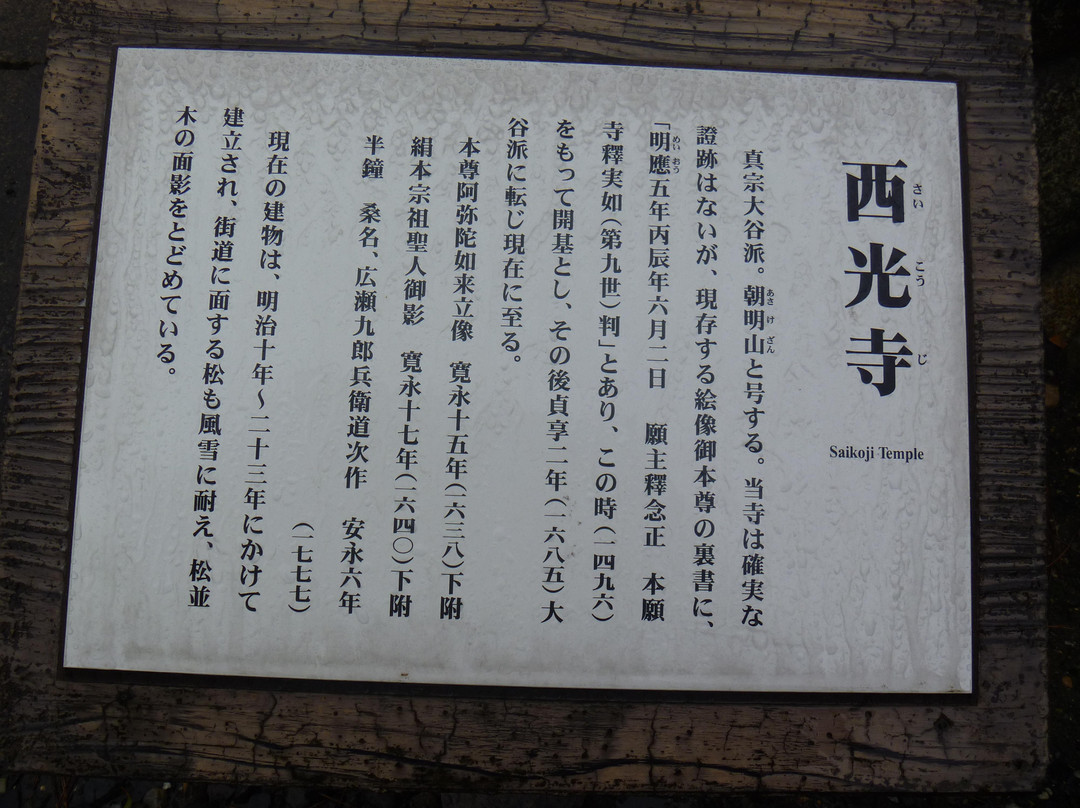 西光寺
さい こう じ
Saikoji Temple
真宗大谷派。朝明山と号する。当寺は確実な
あさ け ざん
證跡はないが、現存する絵像御本尊の裏書に、
「明應五年丙辰年六月二日　願主釋念正　本願
めい おう
寺釋実如(第九世)判」とあり、この時(一四九六)
をもって開基とし、その後貞享二年(一六八五)大
谷派に転じ現在に至る。
本尊阿弥陀如来立像　寛永十五年(一六三八)下附
絹本宗祖聖人御影　寛永十七年(一六四〇)下附
半鐘　桑名、広瀬九郎兵衛道次作　安永六年
(一七七七)
現在の建物は、明治十年～二十三年にかけて
建立され、街道に面する松も風雪に耐え、松並
木の面影をとどめている。